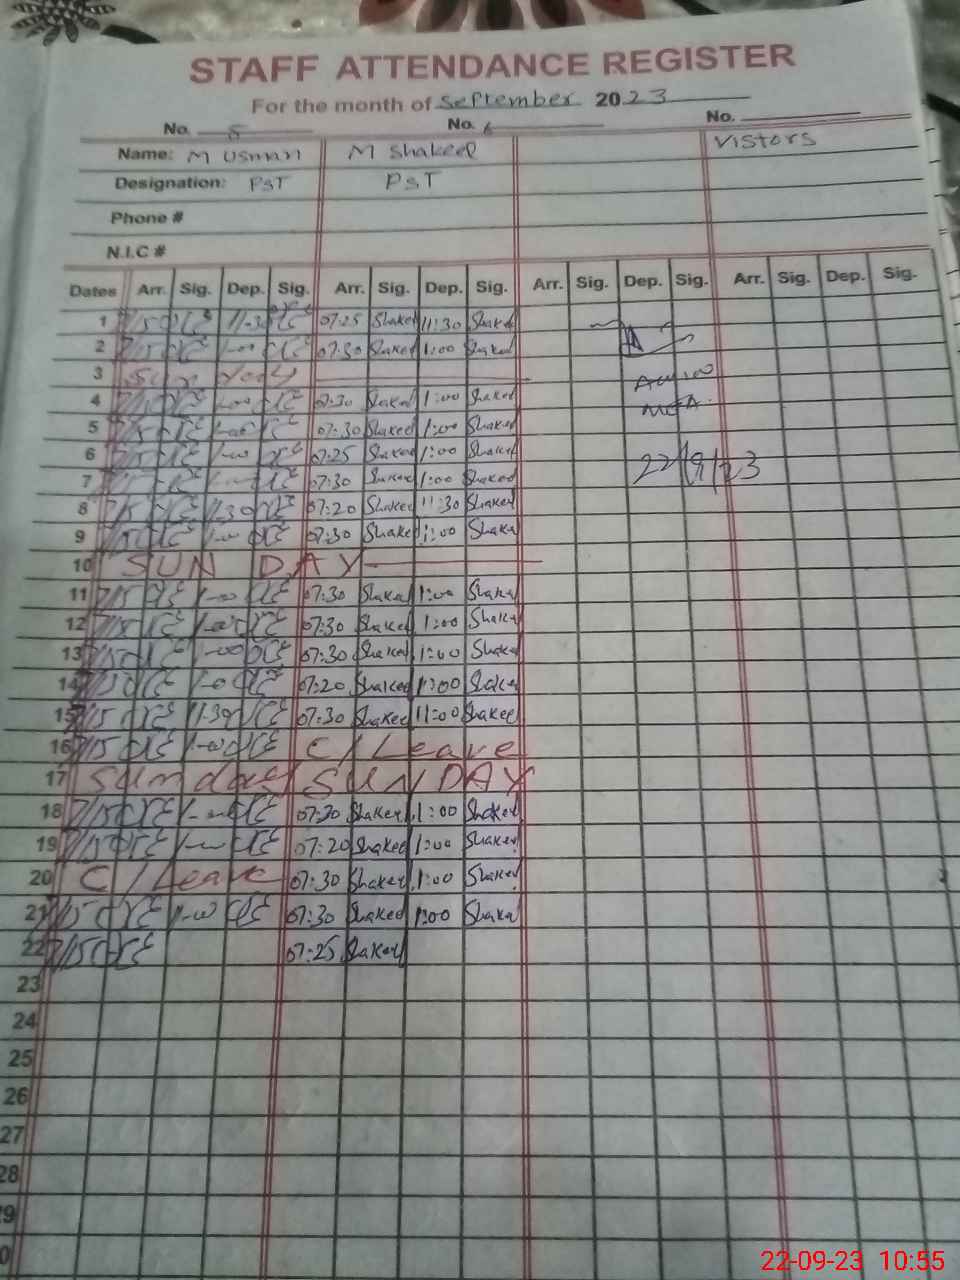 STAFF ATTENDANCE REGISTER
For the month of September 2023
No. 5 No. 6 No.
Name: M Usman M Shakeel Vistors
Designation: PST PST
Phone #
N.I.C #
Dates Arr. Sig. Dep. Sig. Arr. Sig. Dep. Sig. Arr. Sig. Dep. Sig. Arr. Sig. Dep. Sig.
1 7/15 11-30 07:25 Shakeel 11:30 Shakeel
2 7/15 1-00 07:30 Shakeel 1:00 Shakeel
3 Sun
4 7/15 1-00 07:30 Shakeel 1:00 Shakeel
5 7/15 1-00 07:30 Shakeel 1:00 Shakeel
6 7/15 1-00 07:25 Shakeel 1:00 Shakeel
7 7/15 07:30 Shakeel 1:00 Shakeel 22/9/23
8 7/15 11-30 07:20 Shakeel 11:30 Shakeel
9 7/15 1-00 07:30 Shakeel 1:00 Shakeel
10 SUN DAY
11 7/15 1-00 07:30 Shakeel 1:00 Shakeel
12 7/15 1-00 07:30 Shakeel 1:00 Shakeel
13 7/15 1-00 07:30 Shakeel 1:00 Shakeel
14 7/15 1-00 07:20 Shakeel 1:00 Shakeel
15 7/15 11-30 07:30 Shakeel 11:00 Shakeel
16 7/15 1-00 C/Leave
17 Sunday SUNDAY
18 7/15 1-00 07:30 Shakeel 1:00 Shakeel
19 7/15 1-00 07:20 Shakeel 1:00 Shakeel
20 C/Leave 07:30 Shakeel 1:00 Shakeel
21 7/15 1-00 07:30 Shakeel 1:00 Shakeel
22 7/15 07:25 Shakeel
23
24
25
26
27
28
22-09-23 10:55